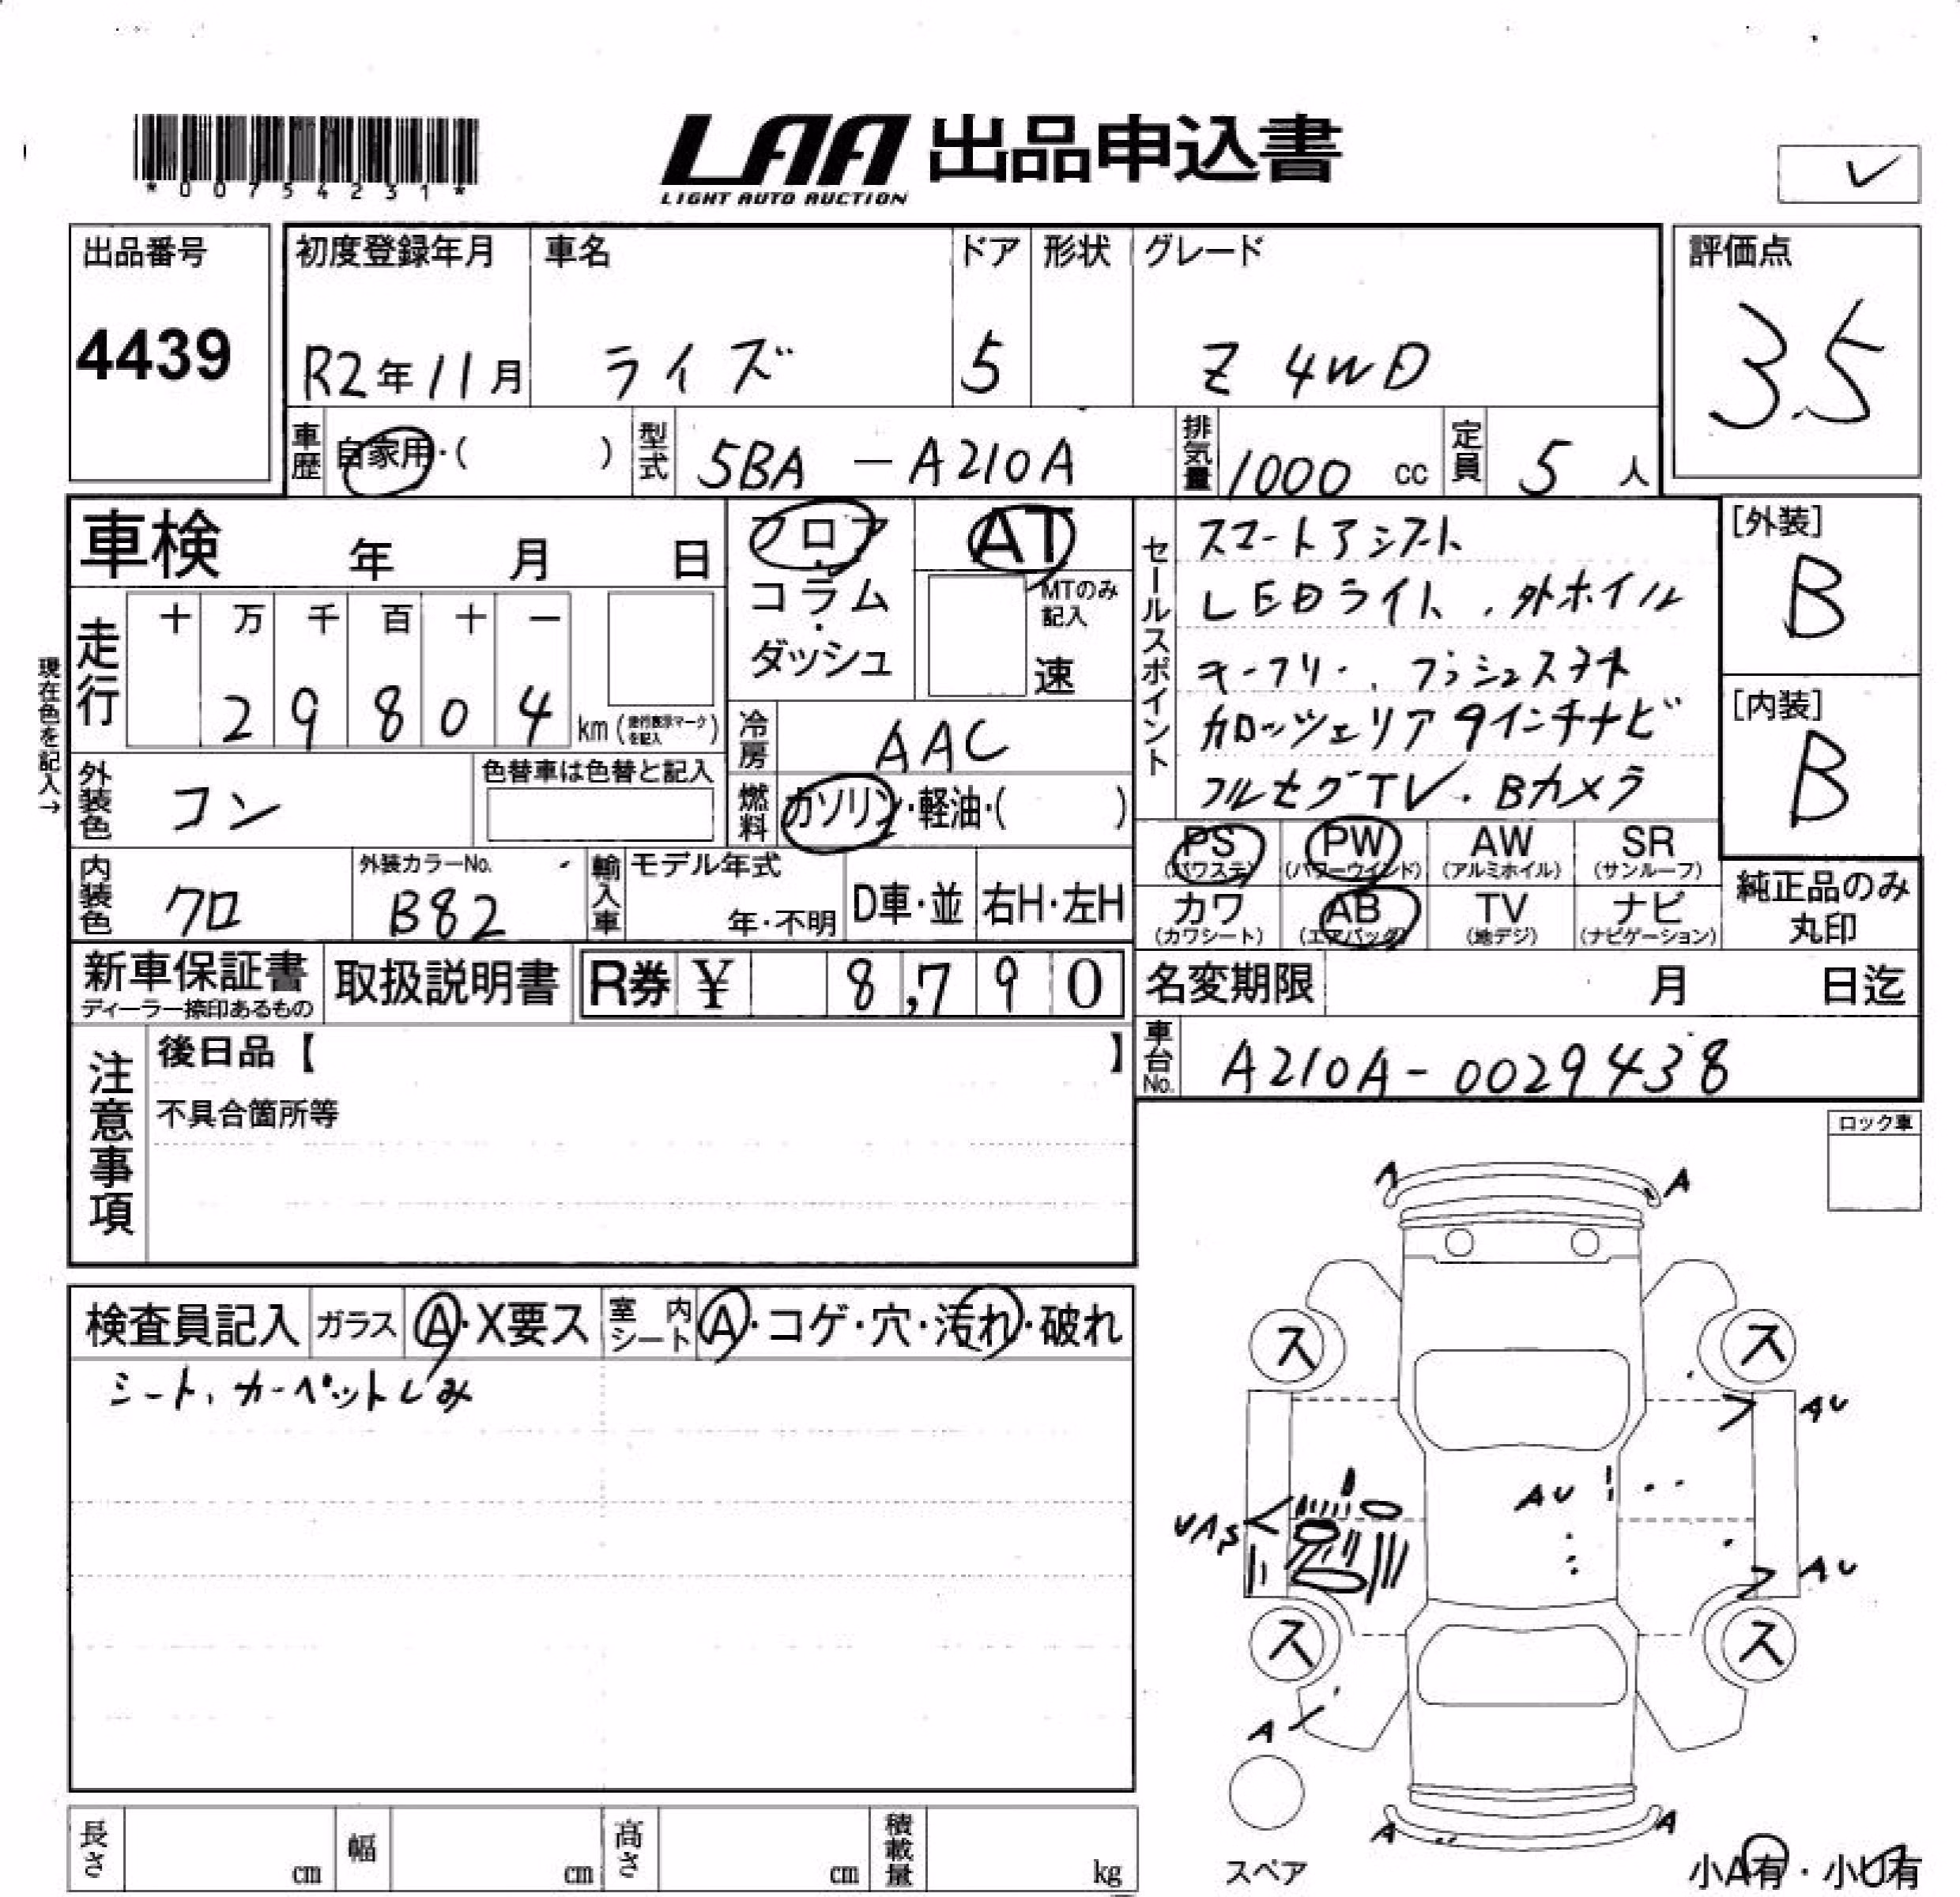 *00754231*
LAA 出品申込書
LIGHT AUTO AUCTION
出品番号
4439
初度登録年月
R2年11月
車名
ライズ
ドア
5
形状
グレード
Z 4WD
評価点
3.5
車歴
自家用・( )
型式
5BA - A210A
排気量
1000 cc
定員
5 人
車検 年 月 日
フロア・コラム・ダッシュ
AT
MTのみ記入
速
セールスポイント
スマートアシスト
LEDライト、外ホイル
キーフリー、プッシュスタート
カロッツェリア9インチナビ
フルセグTV、Bカメラ
[外装]
B
[内装]
B
現在色を記入→
走行
十 万 千 百 十 一
2 9 8 0 4 km (走行表示マークを記入)
冷房
AAC
外装色
コン
色替車は色替と記入
燃料
ガソリン・軽油・( )
PS (パワステ) PW (パワーウインド) AW (アルミホイル) SR (サンルーフ)
カワ (カワシート) AB (エアバッグ) TV (地デジ) ナビ (ナビゲーション)
純正品のみ丸印
内装色
クロ
外装カラーNo.
B82
輸入車
モデル年式
年・不明
D車・並
右H・左H
新車保証書
ディーラー捺印あるもの
取扱説明書
R券 ¥ 8,790
名変期限 月 日迄
車台No.
A210A-0029438
注意事項
後日品【 】
不具合箇所等
ロック車
検査員記入 ガラス A・X要ス 室内シート A・コゲ・穴・汚れ・破れ
シート、カーペットしみ
A
A
ス
ス
AU
AU
UAS
AU
ス
ス
A
A
A
スペア
小A有・小U有
長さ cm 幅 cm 高さ cm 積載量 kg